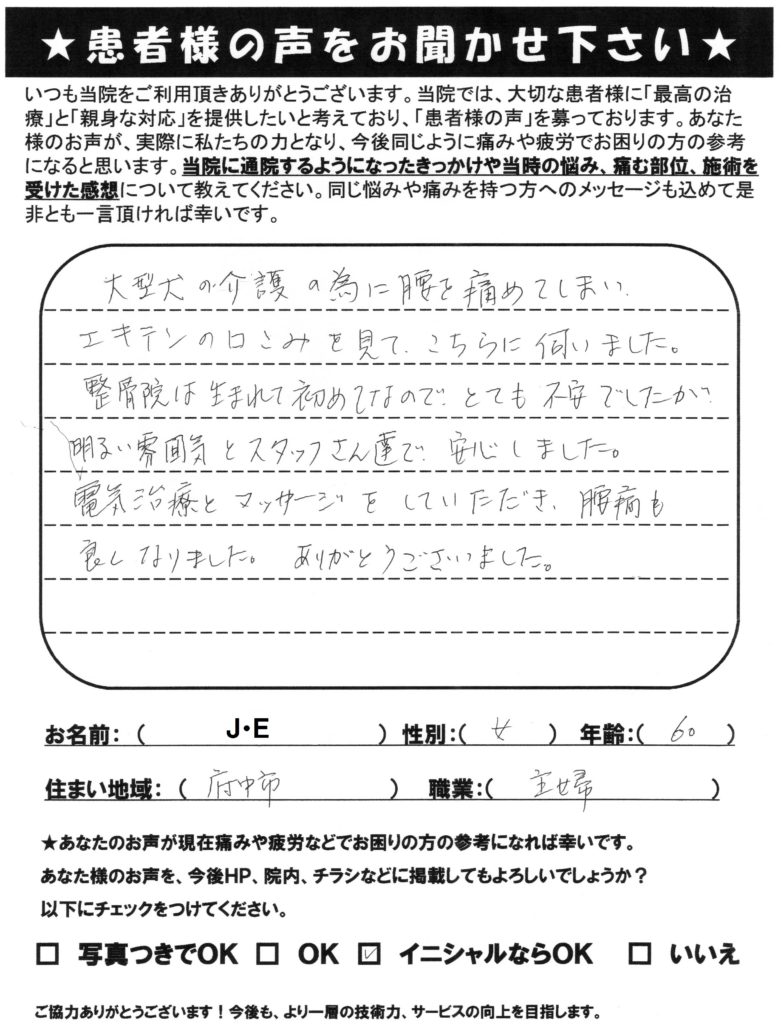 ★患者様の声をお聞かせ下さい★
いつも当院をご利用頂きありがとうございます。当院では、大切な患者様に「最高の治
療」と「親身な対応」を提供したいと考えており、「患者様の声」を募っております。あなた
様のお声が、実際に私たちの力となり、今後同じように痛みや疲労でお困りの方の参考
になると思います。当院に通院するようになったきっかけや当時の悩み、痛む部位、施術を
受けた感想について教えてください。同じ悩みや痛みを持つ方へのメッセージも込めて是
非とも一言頂ければ幸いです。
大型犬の介護の為に腰を痛めてしまい、
エキテンの口こみを見て、こちらに伺いました。
整骨院は生まれて初めてなので、とても不安でしたが、
明るい雰囲気とスタッフさん達で、安心しました。
電気治療とマッサージをしていただき、腰痛も
良くなりました。 ありがとうございました。
お名前：（ J・E ） 性別：（ 女 ） 年齢：（ 60 ）
住まい地域：（ 府中市 ） 職業：（ 主婦 ）
★あなたのお声が現在痛みや疲労などでお困りの方の参考になれば幸いです。
あなた様のお声を、今後HP、院内、チラシなどに掲載してもよろしいでしょうか？
以下にチェックをつけてください。
□ 写真つきでOK □ OK ☑ イニシャルならOK □ いいえ
ご協力ありがとうございます！今後も、より一層の技術力、サービスの向上を目指します。